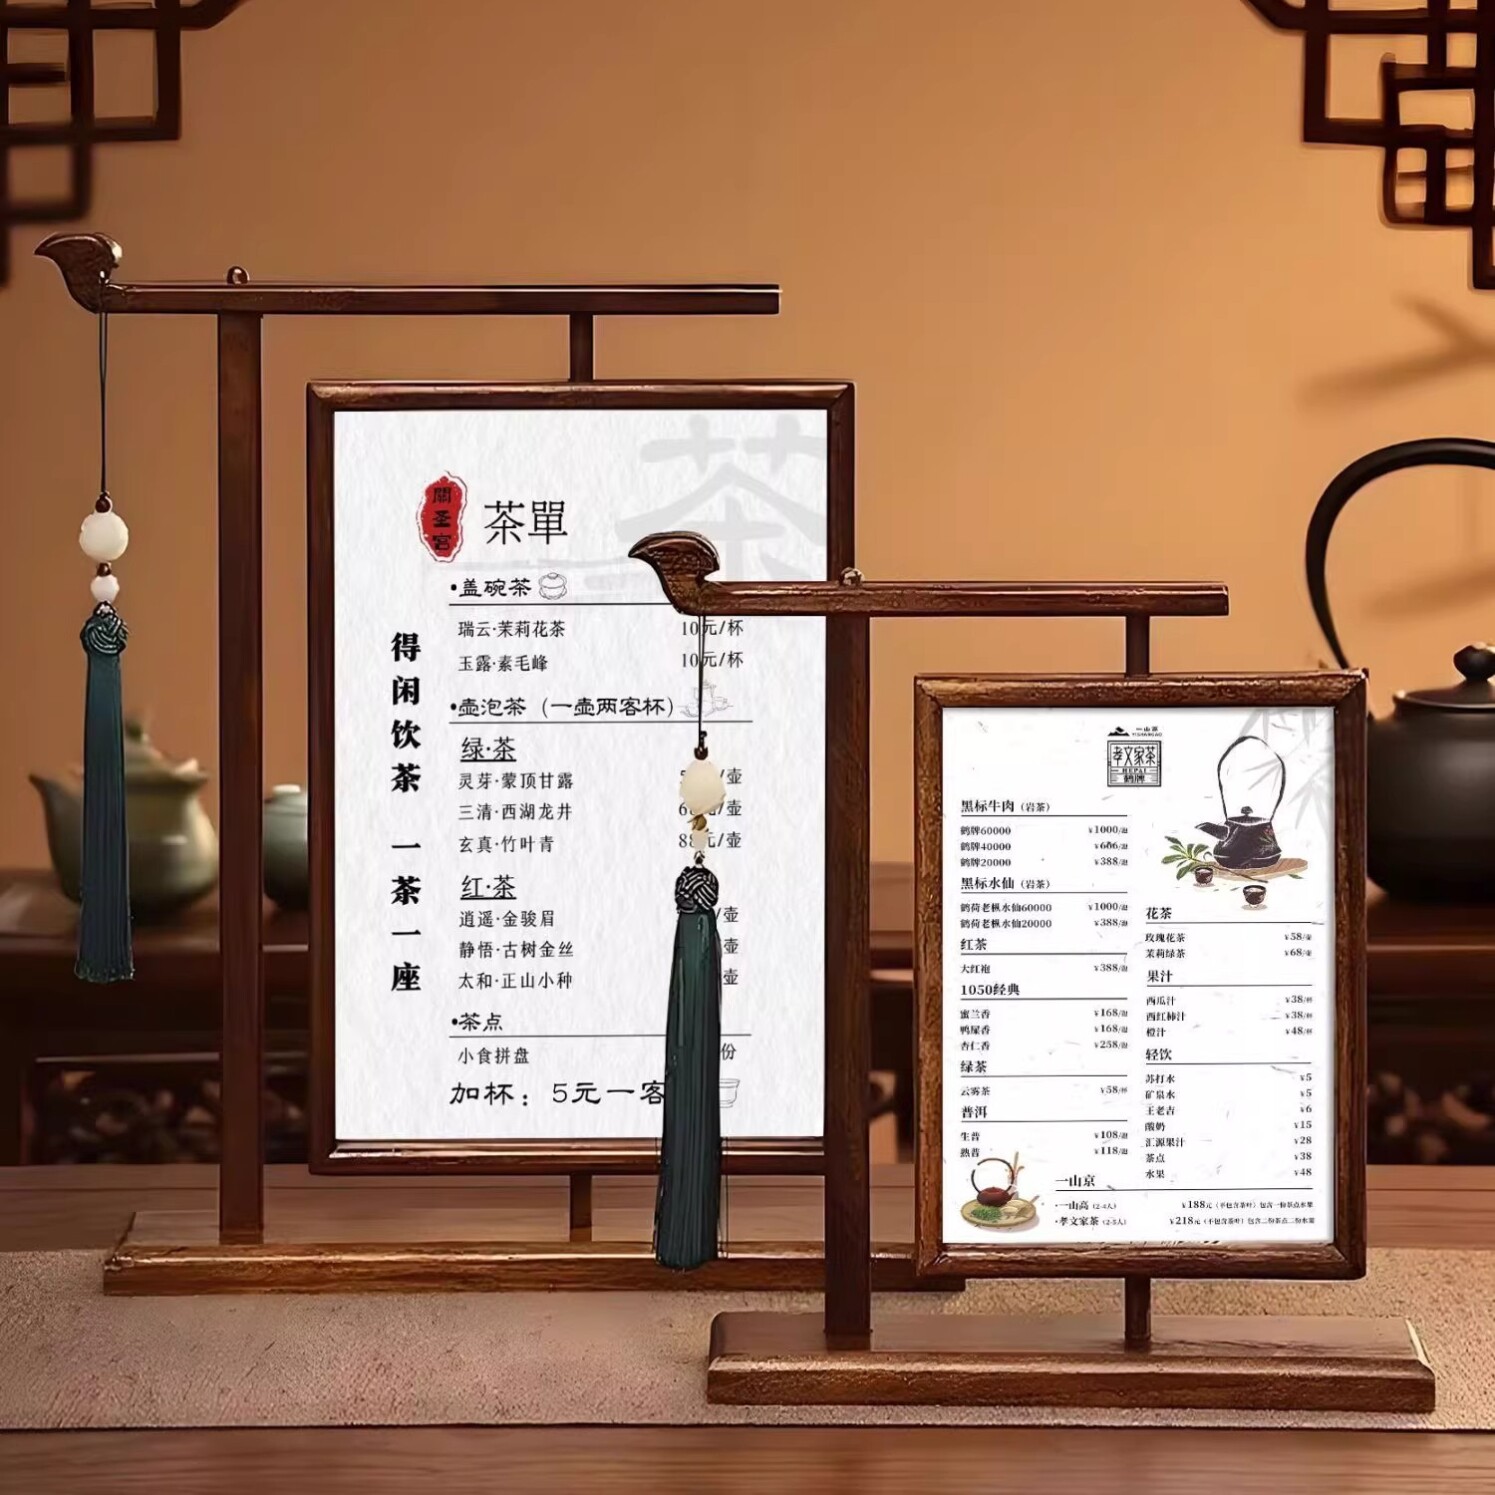 茶
關圣宫
茶單
得闲饮茶 一茶一座
•盖碗茶
瑞云·茉莉花茶 10元/杯
玉露·素毛峰 10元/杯
•壶泡茶（一壶两客杯）
绿·茶
灵芽·蒙顶甘露 /壶
三清·西湖龙井 /壶
玄真·竹叶青 88元/壶
红·茶
逍遥·金骏眉 /壶
静悟·古树金丝 壶
太和·正山小种 壶
•茶点
小食拼盘 份
加杯：5元一客
孝文家茶
HEPAI
鹤牌
黑标牛肉（岩茶）
鹤牌60000 ¥1000/泡
鹤牌40000 ¥686/泡
鹤牌20000 ¥388/泡
黑标水仙（岩茶）
鹤荷老枞水仙60000 ¥1000/泡
鹤荷老枞水仙20000 ¥388/泡
红茶
大红袍 ¥388/泡
1050经典
蜜兰香 ¥168/泡
鸭屎香 ¥168/泡
杏仁香 ¥258/泡
绿茶
云雾茶 ¥58/杯
普洱
生普 ¥108/泡
熟普 ¥118/泡
花茶
玫瑰花茶 ¥58/壶
茉莉绿茶 ¥68/壶
果汁
西瓜汁 ¥38/杯
西红柿汁 ¥38/杯
橙汁 ¥48/杯
轻饮
苏打水 ¥5
矿泉水 ¥5
王老吉 ¥6
酸奶 ¥15
汇源果汁 ¥28
茶点 ¥38
水果 ¥48
一山京
·一山高（2-4人） ¥188元（不包含茶叶）包含一份茶点水果
·孝文家茶（2-5人） ¥218元（不包含茶叶）包含二份茶点二份水果